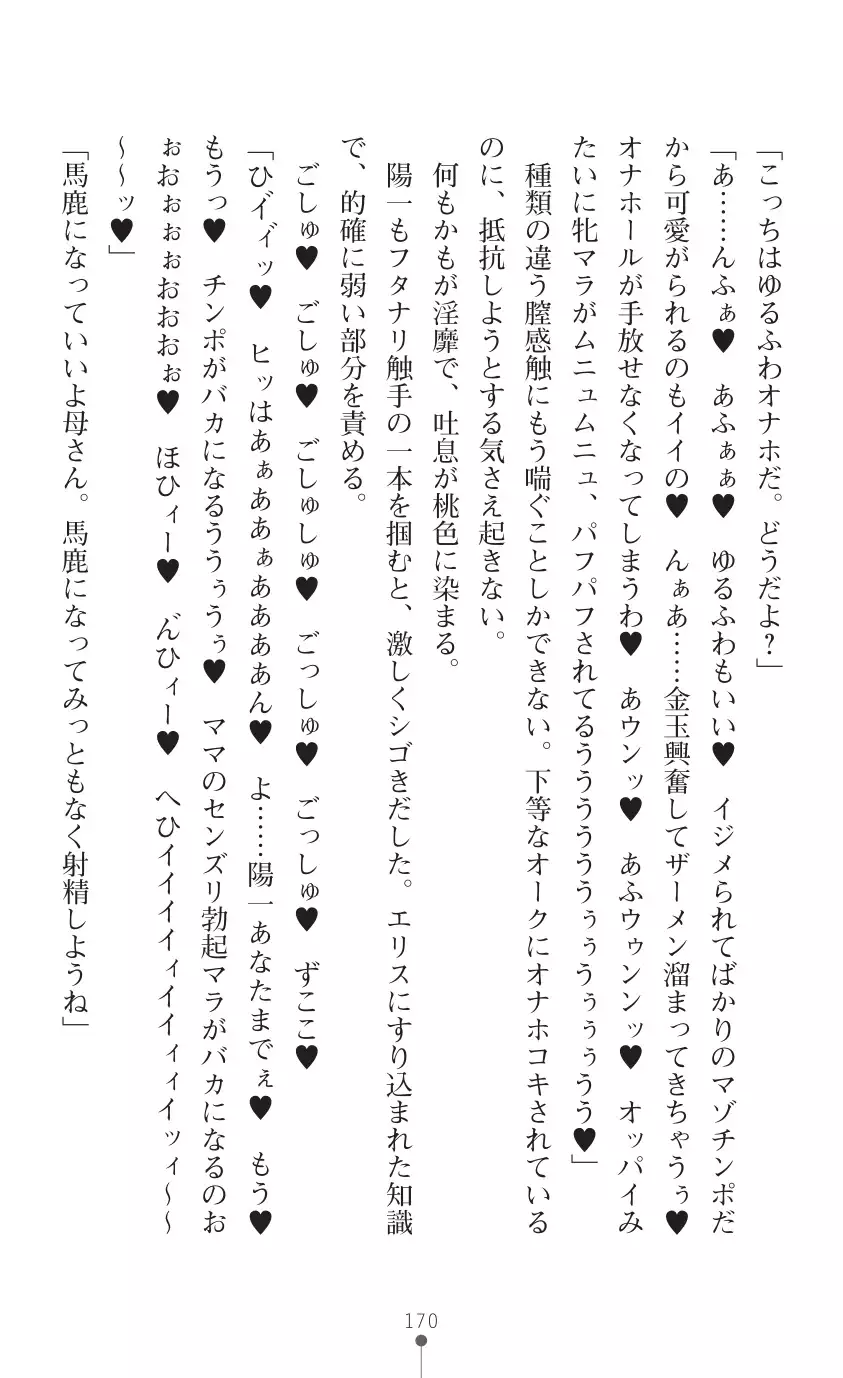 「こっちはゆるふわオナホだ。どうだよ？」
「あ……んふぁ♥　あふぁぁ♥　ゆるふわもいい♥　イジメられてばかりのマゾチンポだ
から可愛がられるのもイイの♥　んぁあ……金玉興奮してザーメン溜まってきちゃうぅ♥
オナホールが手放せなくなってしまうわ♥　あウンッ♥　あふウゥンンッ♥　オッパイみ
たいに牝マラがムニュムニュ、パフパフされてるうううううぅぅうぅぅぅうう♥」
　種類の違う膣感触にもう喘ぐことしかできない。下等なオークにオナホコキされている
のに、抵抗しようとする気さえ起きない。
　何もかもが淫靡で、吐息が桃色に染まる。
　陽一もフタナリ触手の一本を掴むと、激しくシゴきだした。エリスにすり込まれた知識
で、的確に弱い部分を責める。
　ごしゅ♥　ごしゅ♥　ごしゅしゅ♥　ごっしゅ♥　ごっしゅ♥　ずここ♥
「ひイ゛ィ゛ッ♥　ヒッはあぁああぁあああん♥　よ……陽一あなたまでぇ♥　もう♥
もうっ♥　チンポがバカになるううぅうぅ♥　ママのセンズリ勃起マラがバカになるのお
ぉおぉぉぉおおおぉ♥　ほひィー♥　ん゛ひィー♥　へひイイイイィイイィィイッィ～～
～～ッ♥」
「馬鹿になっていいよ母さん。馬鹿になってみっともなく射精しようね」
170